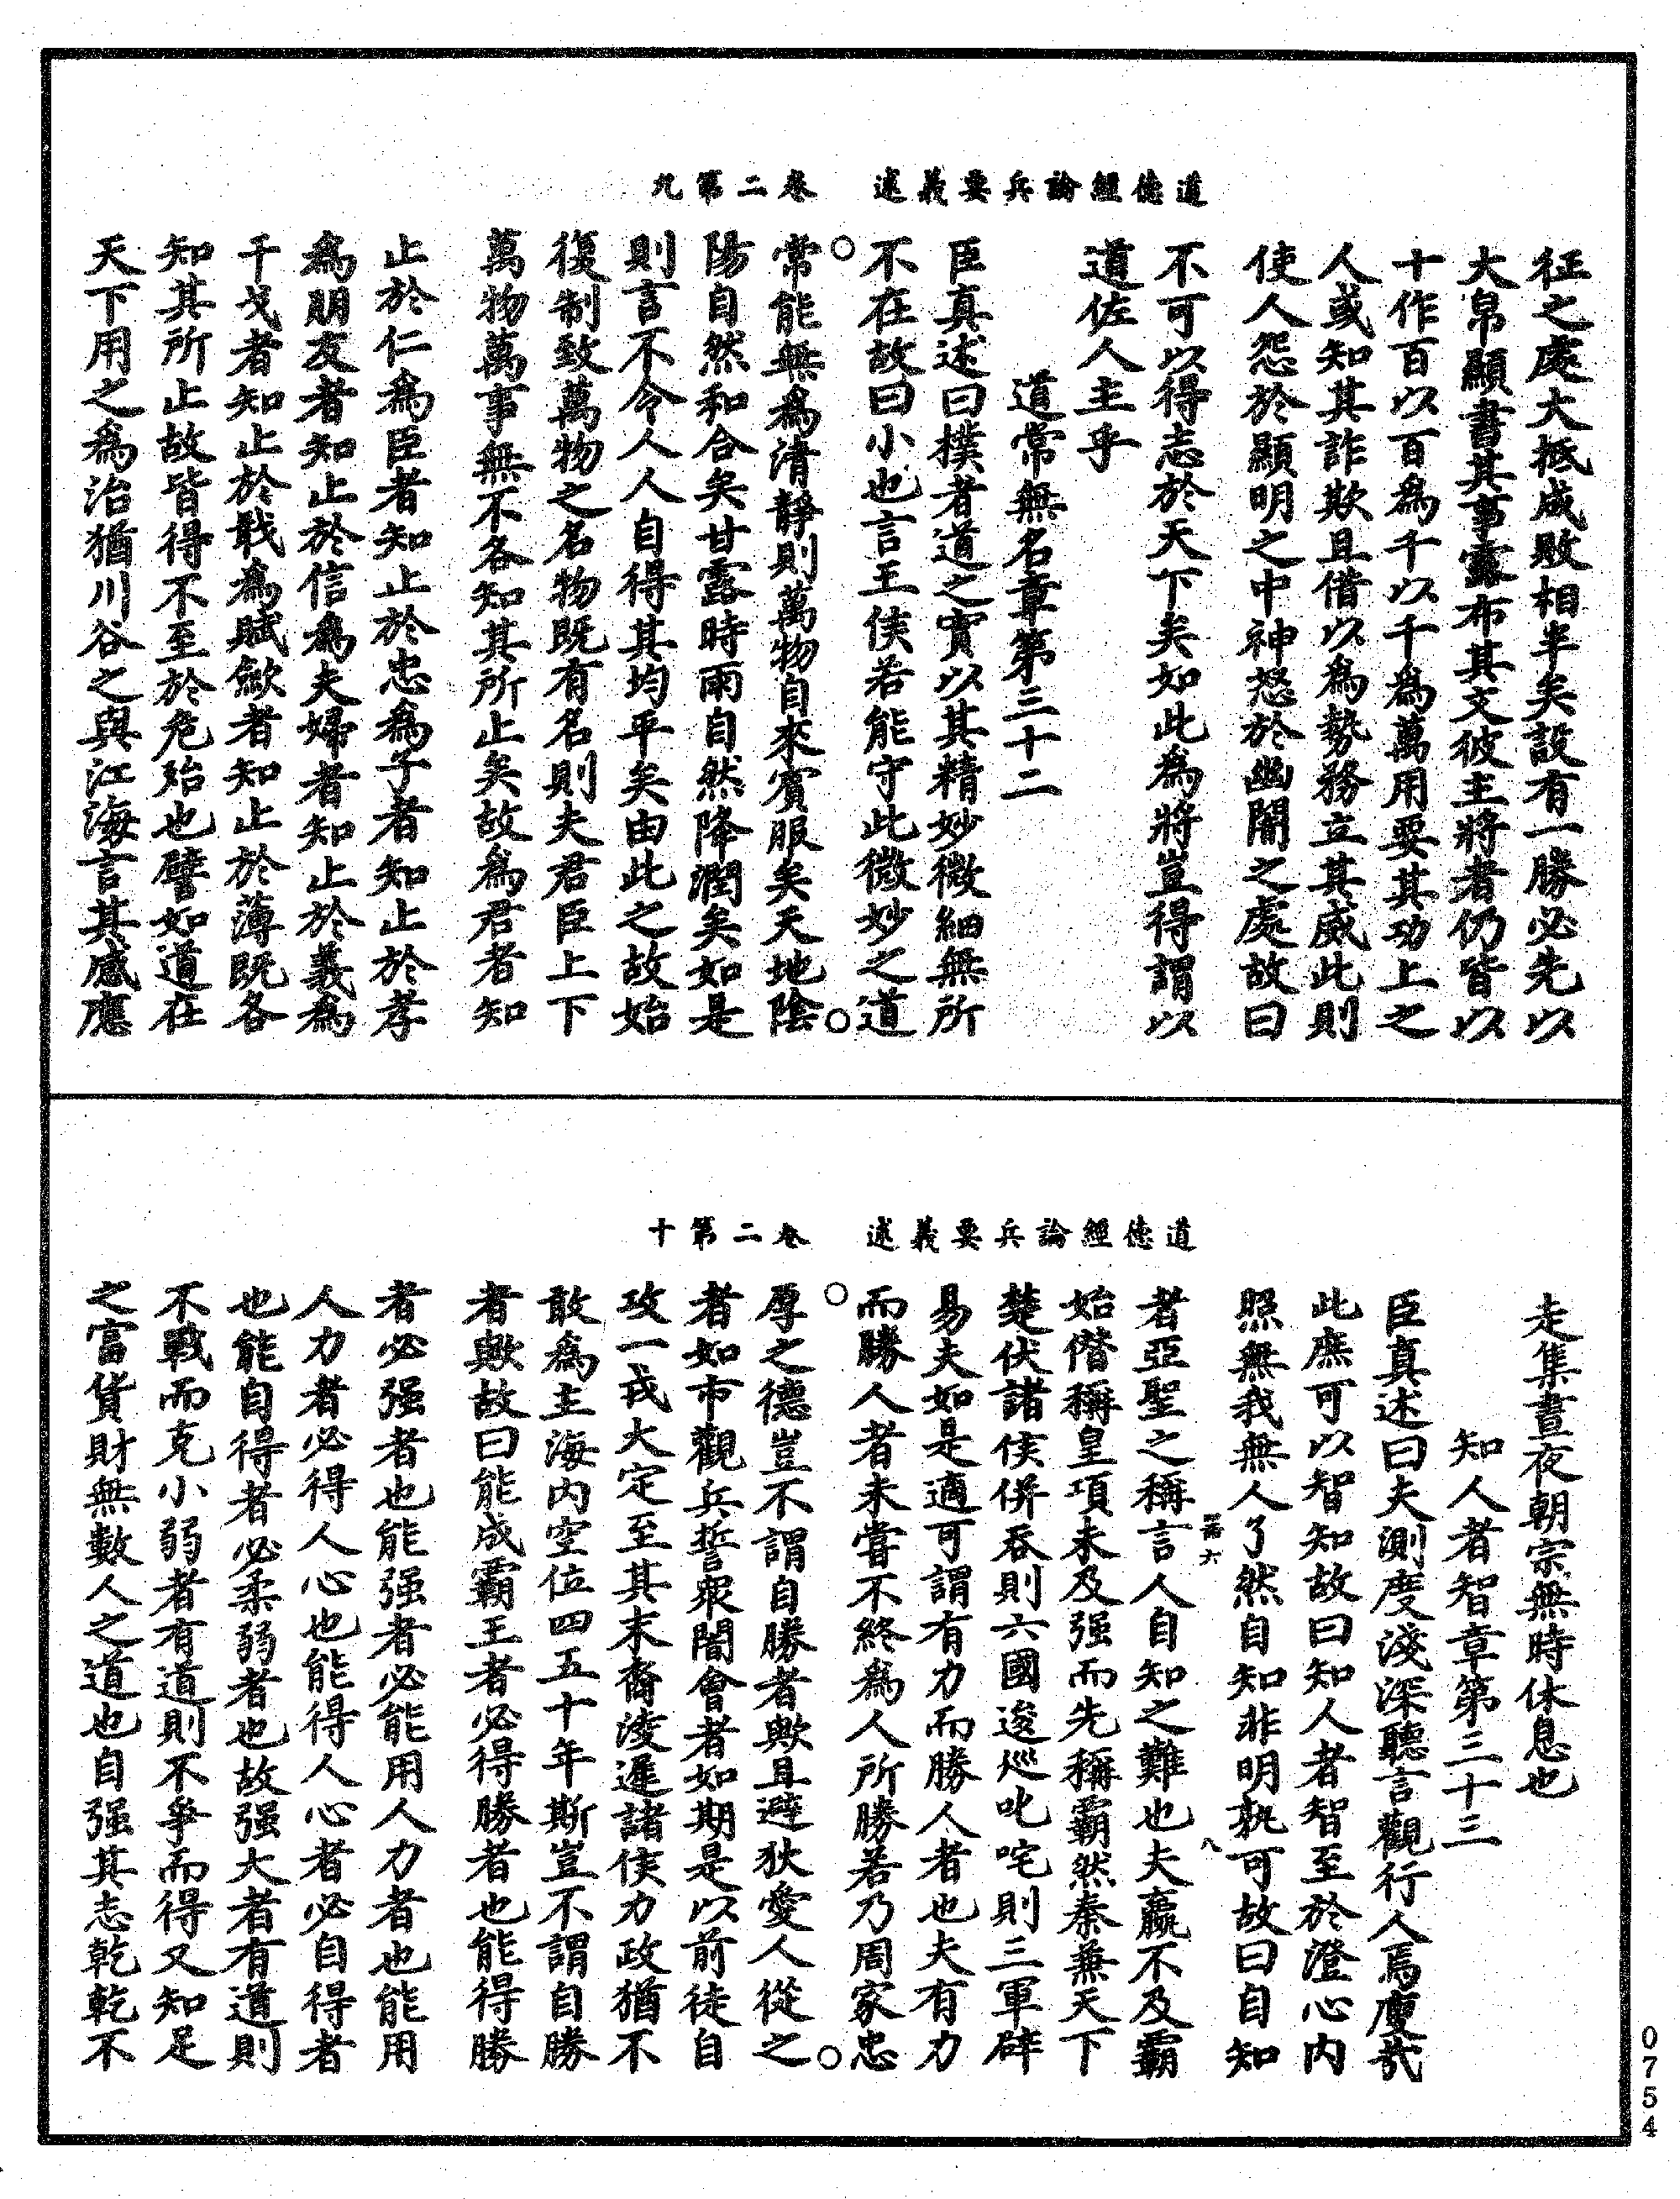 道德經論兵要義述　卷二第九
征之處大抵成敗相半矣設有一勝必先以
大帛顯書其事露布其文彼主將者仍皆以
十作百以百爲千以千爲萬用要其功上之
人或知其詐欺且借以爲勢務立其威此則
使人怨於顯明之中神怒於幽闇之處故曰
不可以得志於天下矣如此爲將豈得謂以
道佐人主乎
道常無名章第三十二
臣真述曰樸者道之實以其精妙微細無所
不在故曰小也言王侯若能守此微妙之道
常能無爲清靜則萬物自來賓服矣天地陰
陽自然和合矣甘露時雨自然降潤矣如是
則言不令人人自得其均平矣由此之故始
復制致萬物之名物既有名則夫君臣上下
萬物萬事無不各知其所止矣故爲君者知
止於仁爲臣者知止於忠爲子者知止於孝
爲朋友者知止於信爲夫婦者知止於義爲
干戈者知止於戢爲賦斂者知止於薄既各
知其所止故皆得不至於危殆也譬如道在
天下用之爲治猶川谷之與江海言其感應
道德經論兵要義述　卷二第十
走集晝夜朝宗無時休息也
知人者智章第三十三
臣真述曰夫測度淺深聽言觀行人焉廋哉
此庶可以智知故曰知人者智至於澄心内
照無我無人了然自知非明孰可故曰自知
者亞聖之稱言人自知之難也夫嬴不及霸
始僭稱皇項未及强而先稱霸然秦兼天下
楚伏諸侯併吞則六國逡巡叱咤則三軍辟
易夫如是適可謂有力而勝人者也夫有力
而勝人者未嘗不終爲人所勝若乃周家忠
厚之德豈不謂自勝者歟且避狄愛人從之
者如市觀兵誓衆闇會者如期是以前徒自
攻一戎大定至其末裔淩遲諸侯力政猶不
敢爲主海内空位四五十年斯豈不謂自勝
者歟故曰能成霸王者必得勝者也能得勝
者必强者也能强者必能用人力者也能用
人力者必得人心也能得人心者必自得者
也能自得者必柔弱者也故强大者有道則
不戰而克小弱者有道則不爭而得又知足
之富貨財無數人之道也自强其志乾乾不
八
0754